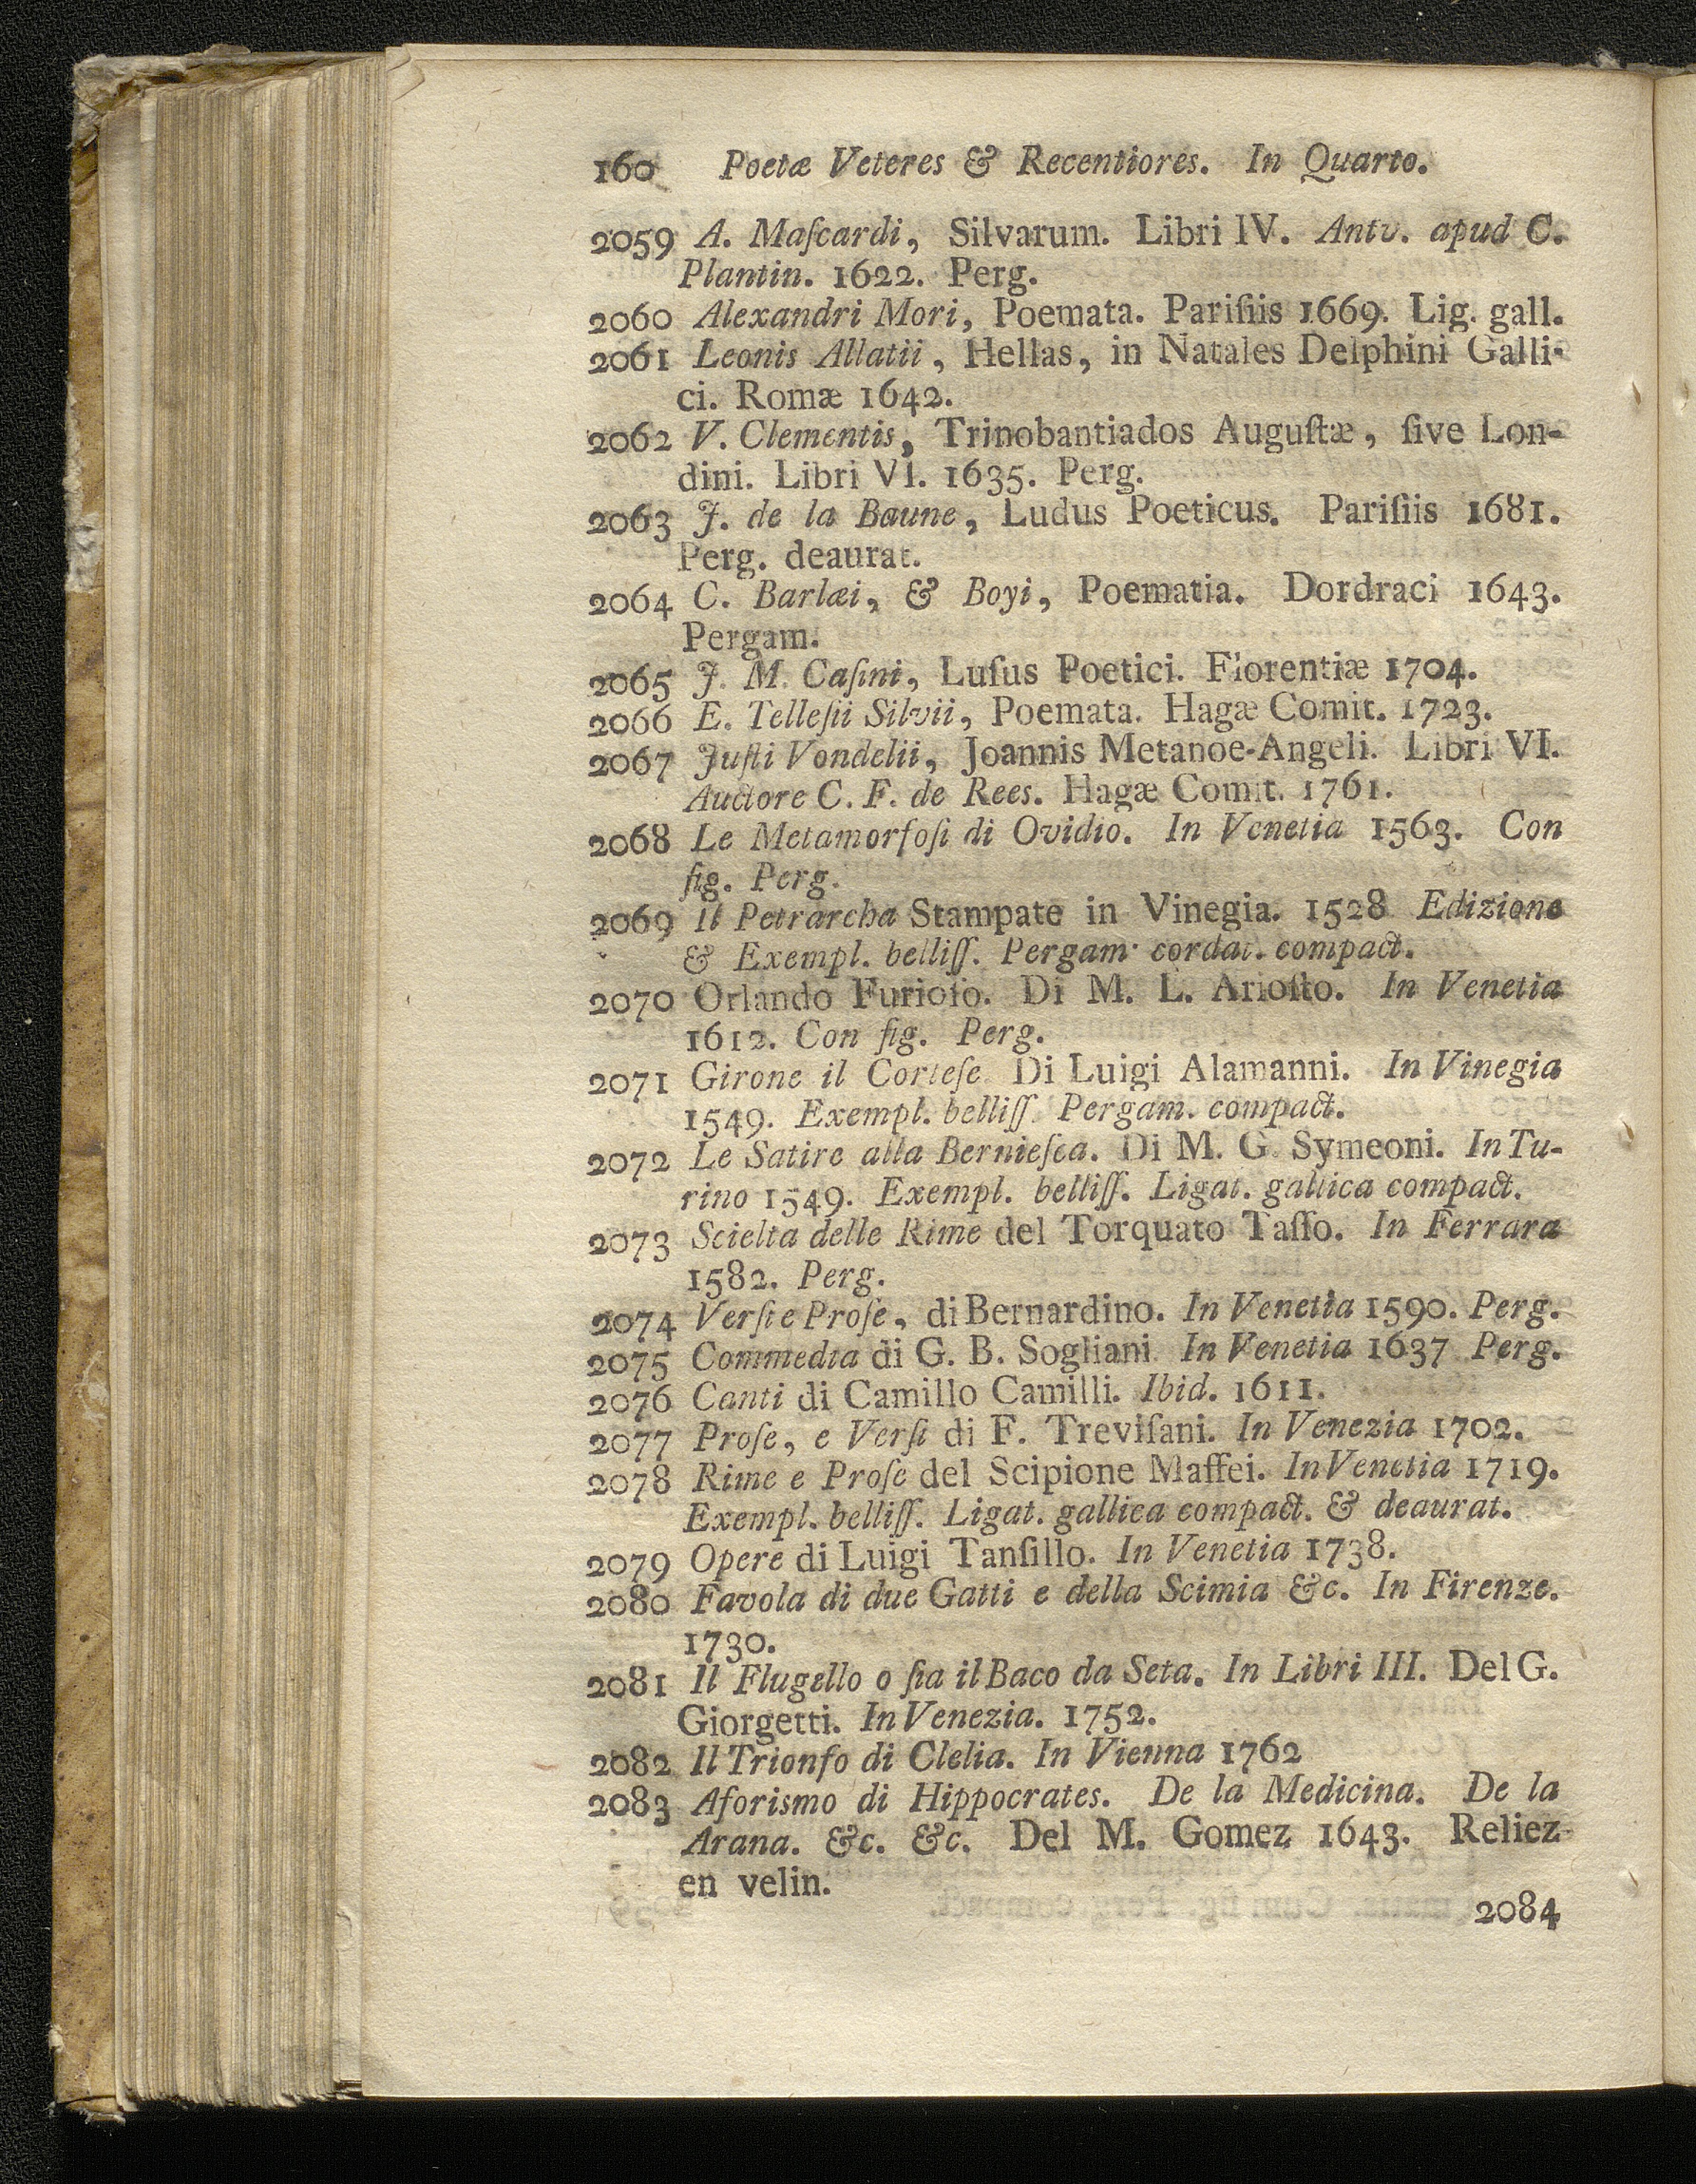 160 Poetæ Veteres & Recentiores. In Quarto.
2059 A. Maſcardi, Silvarum. Libri IV. Antv. apud C.
Plantin. 1622. Perg.
2060 Alexandri Mori, Poemata. Pariſiis 1669. Lig. gall.
2061 Leonis Allatii, Hellas, in Natales Delphini Galli-
ci. Romæ 1642.
2062 V. Clementis, Trinobantiados Auguſtæ, ſive Lon-
dini. Libri VI. 1635. Perg.
2063 J. de la Baune, Ludus Poeticus. Pariſiis 1681.
Perg. deaurat.
2064 C. Barlæi, & Boyi, Poematia. Dordraci 1643.
Pergam.
2065 J. M. Caſini, Luſus Poetici. Florentiæ 1704.
2066 E. Telleſii Silvii, Poemata. Hagæ Comit. 1723.
2067 Juſti Vondelii, Joannis Metanoe-Angeli. Libri VI.
Auctore C. F. de Rees. Hagæ Comit. 1761.
2068 Le Metamorfoſi di Ovidio. In Venetia 1563. Con
fig. Perg.
2069 Il Petrarcha Stampate in Vinegia. 1528 Edizione
& Exempl. belliſſ. Pergam. cordat. compact.
2070 Orlando Furioſo. Di M. L. Arioſto. In Venetia
1612. Con fig. Perg.
2071 Girone il Corteſe. Di Luigi Alamanni. In Vinegia
1549. Exempl. belliſſ. Pergam. compact.
2072 Le Satire alla Bernieſca. Di M. G. Symeoni. In Tu-
rino 1549. Exempl. belliſſ. Ligat. gallica compact.
2073 Scielta delle Rime del Torquato Taſſo. In Ferrara
1582. Perg.
2074 Verſi e Proſe, di Bernardino. In Venetia 1590. Perg.
2075 Commedia di G. B. Sogliani In Venetia 1637 Perg.
2076 Canti di Camillo Camilli. Ibid. 1611.
2077 Proſe, e Verſi di F. Treviſani. In Venezia 1702.
2078 Rime e Proſe del Scipione Maffei. In Venetia 1719.
Exempl. belliſſ. Ligat. gallica compact. & deaurat.
2079 Opere di Luigi Tanſillo. In Venetia 1738.
2080 Favola di due Gatti e della Scimia &c. In Firenze.
1730.
2081 Il Flugello o ſia il Baco da Seta. In Libri III. Del G.
Giorgetti. In Venezia. 1752.
2082 Il Trionfo di Clelia. In Vienna 1762
2083 Aforismo di Hippocrates. De la Medicina. De la
Arana. &c. &c. Del M. Gomez 1643. Reliez
en velin.
2084